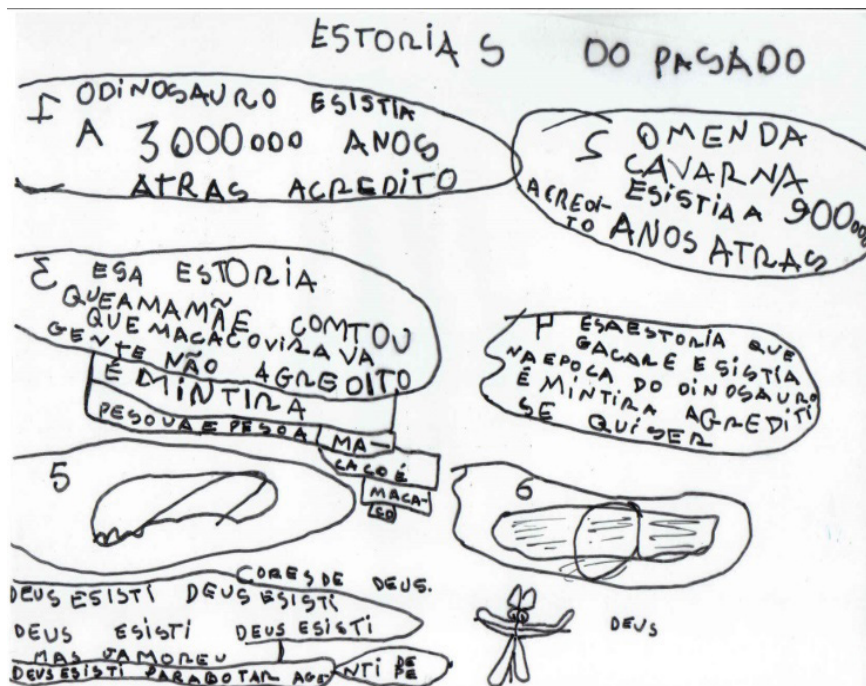 ESTORIAS DO PASADO
1 ODINOSAURO ESISTIA
A 3000000 ANOS
ATRAS ACREDITO
OMENDA
CAVARNA
ESISTIA A 900000
ACREDI-
TO ANOS ATRAS
3 ESA ESTORIA
QUEAMAMÃE COMTOU
QUE MACACOVIRAVA
GENTE NÃO AGREDITO
É MINTIRA
PESOUA E PESOA MA-
CACO É
MACA-
CO
4 ESAESTORIA QUE
GACARE ESISTIA
NAEPOCA DO DINOSAURO
É MINTIRA AGREDITI
SE QUISER
5
6
CORES DE DEUS.
DEUS ESISTI DEUS ESISTI
DEUS ESISTI DEUS ESISTI
MAS JAMOREU
DEUSESISTI PARABOTAR AGENTI DE
PE
DEUS